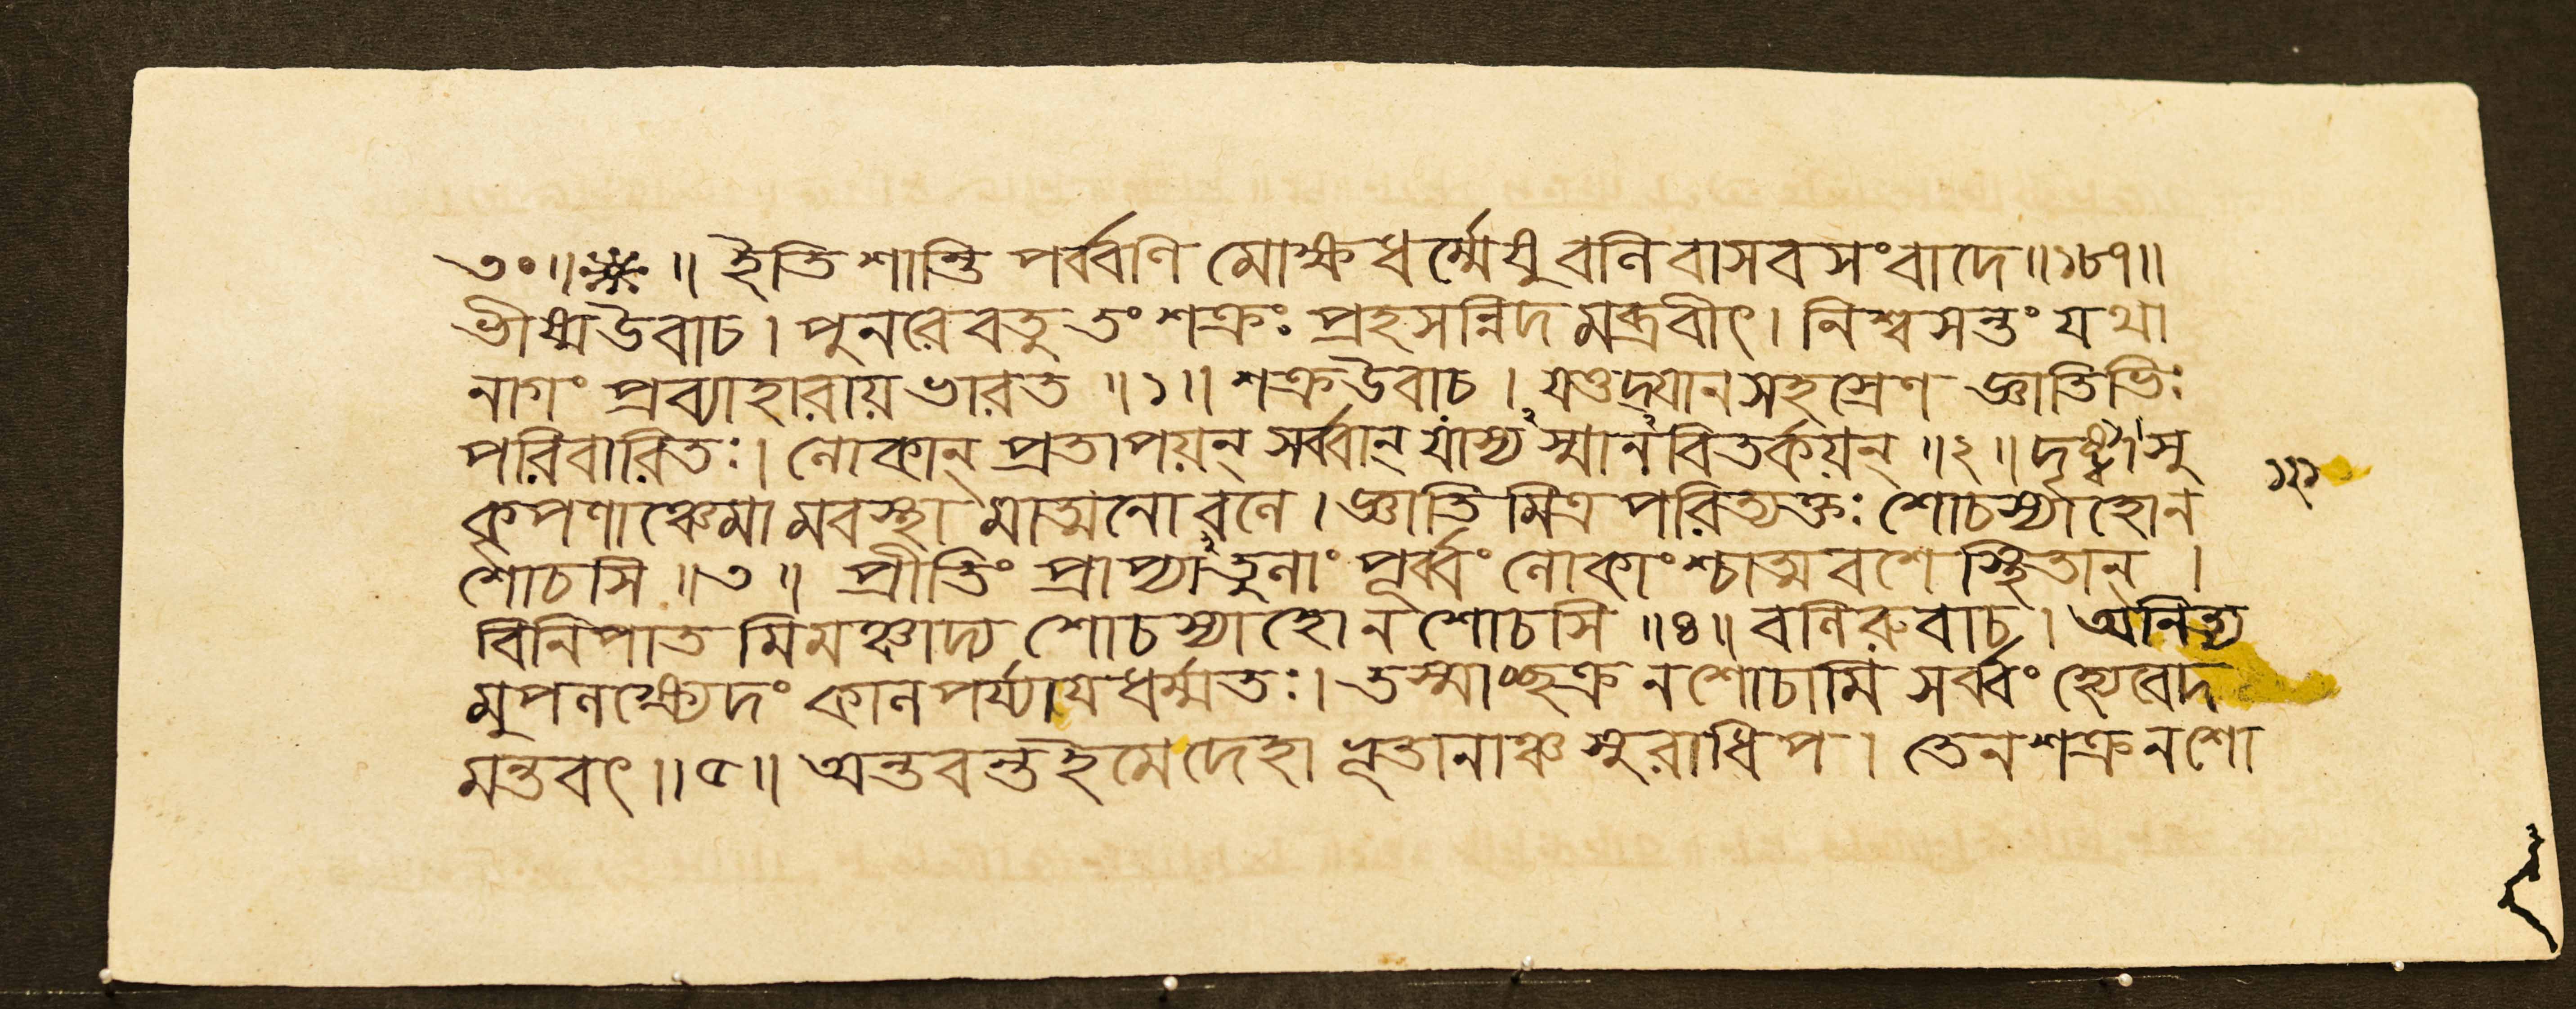 ৩০॥ ॥ ইতি শান্তি পর্ব্বণি মোক্ষধর্ম্মেষু বলি বাসব সংবাদে॥১৮৭॥
ভীষ্ম উবাচ। পুনরেব তু তং শক্রঃ প্রহসন্নিদমব্রবীৎ। নিশ্বসন্তং যথা
নাগং প্রব্যাহারায় ভারত ॥১॥ শক্র উবাচ। যত্তদ্যানসহস্রেণ জ্ঞাতিভিঃ
পরিবারিতঃ। লোকান্ প্রতাপয়ন্ সর্ব্বান্ যাস্যস্মানবিতর্কয়ন্ ॥২॥ দৃষ্ট্বা সু
কৃপণাঞ্চেমামবস্থামাত্মনো বলে। জ্ঞাতিমিত্রপরিত্যক্তঃ শোচস্যাহো ন
শোচসি ॥৩॥ প্রীতিং প্রাপ্যাতুলাং পূর্ব্বং লোকাংশ্চাত্মবশে স্থিতান্।
বিনিপাতমিমঞ্চাদ্য শোচস্যাহো ন শোচসি ॥৪॥ বলিরুবাচ। অনিত্য
মুপলক্ষ্যেদং কালপর্য্যায়ধর্ম্মতঃ। তস্মাচ্ছক্র ন শোচামি সর্ব্বং হ্যেবেদ
মন্তবৎ॥৫॥ অন্তবন্ত ইমে দেহা ভূতানাঞ্চ সুরাধিপ। তেন শক্র ন শো
১২১